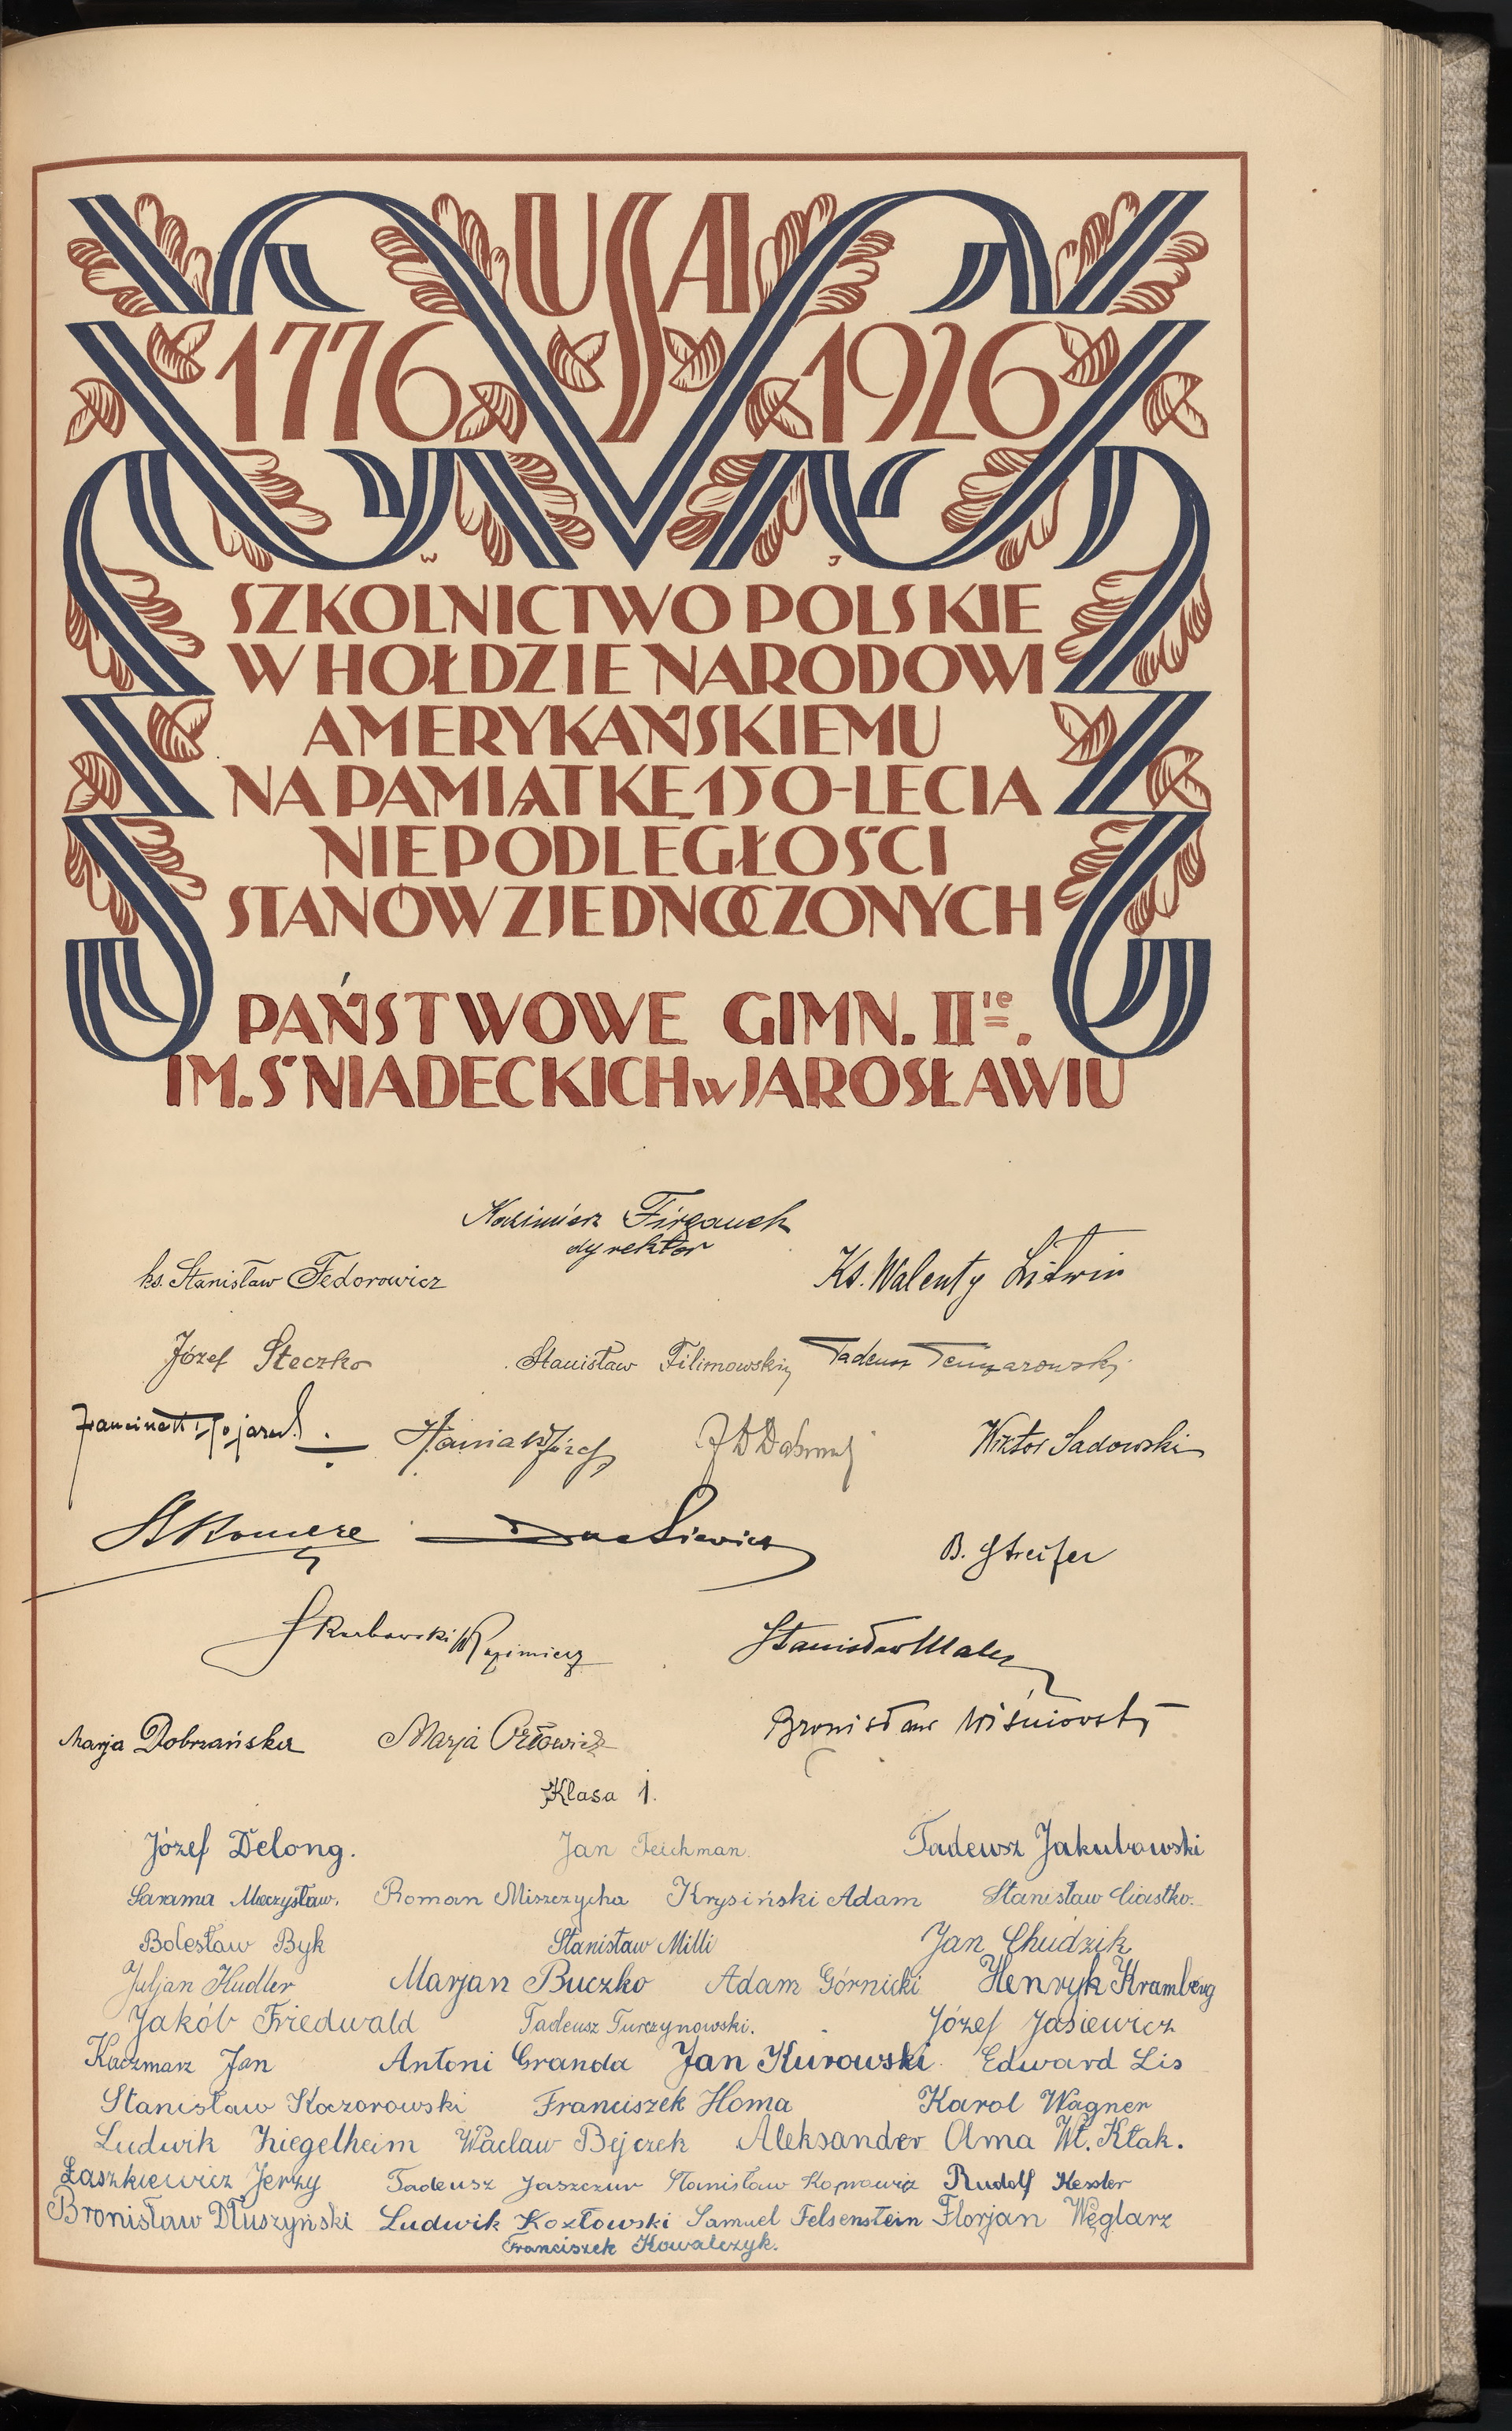 USA
1776 1926
W J
SZKOLNICTWO POLSKIE
W HOŁDZIE NARODOWI
AMERYKAŃSKIEMU
NA PAMIĄTKĘ 150-LECIA
NIEPODLEGŁOŚCI
STANÓW ZJEDNOCZONYCH
PAŃSTWOWE GIMN. II ie.
IM. ŚNIADECKICH w JAROSŁAWIU
Kazimierz Firganek
dyrektor
ks. Stanisław Fedorowicz Ks. Walenty Litwin
Józef Steczko Stanisław Filimowski Tadeusz
Józef Wiktor Sadowski
B. Streifer
Kazimierz Stanisław
Marja Dobrzańska Marja Orłowicz Bronisław Wiśniowski
Klasa 1.
Józef Delong. Jan Teichman. Tadeusz Jakubowski
Sarama Mieczysław. Roman Miszczycha Krysiński Adam Stanisław Ciastko.
Bolesław Byk Stanisław Milli Jan Chudzik
Juljan Hudler Marjan Buczko Adam Górnicki Henryk Kramberg
Jakób Friedwald Tadeusz Turczynowski. Józef Jasiewicz
Kaczmarz Jan Antoni Granda Jan Kurowski Edward Lis
Stanisław Kaczorowski Franciszek Homa Karol Wagner
Ludwik Ziegelheim Wacław Bejczek Aleksander Olma Wł. Kłak.
Łaszkiewicz Jerzy Tadeusz Jaszczur Stanisław Koprowicz Rudolf Kessler
Bronisław Dłuszyński Ludwik Kozłowski Samuel Felsenstein Florjan Węglarz
Franciszek Kowalczyk.